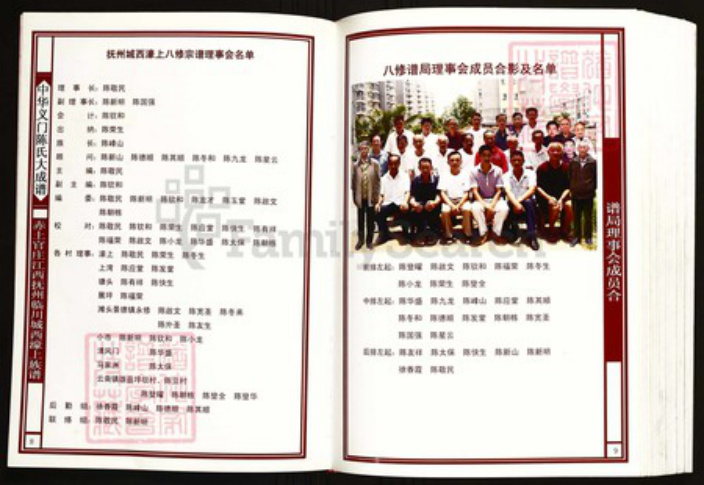 抚州城西濠上八修宗谱理事会名单
理事长：陈敬民
副理事长：陈新明 陈国强
会计：陈钦和
出纳：陈荣生
族长：陈峰山
顾问：陈新山 陈德顺 陈其顺 陈冬和 陈九龙 陈星云
主编：陈敬民
副主编：陈钦和
编委：陈敬民 陈新明 陈钦和 陈龙才 陈玉堂 陈政文
陈朝栋
校对：陈敬民 陈钦和 陈荣生 陈应堂 陈快生 陈有祥
陈福荣 陈政文 陈小龙 陈华盛 陈太保 陈朝栋
各村理事：濠上 陈敬民 陈荣生 陈冬生
上湾 陈应堂 陈发堂
塘头 陈有祥 陈快生
陈福荣
滩头景德镇永修 陈政文 陈宽圣 陈冬弟
陈外圣 陈友生
小市 陈新明 陈钦和 陈小龙
清风门 陈华盛
马家洲 陈太保
陈登曜 陈朝栋 陈登全 陈登华
后勤组：徐香霞 陈峰山 陈德顺 陈其顺
联络组：陈敬民 陈新明
中华义门陈氏大成谱
赤土官庄江西抚州临川城西濠上族谱
8
八修谱局理事会成员合影及名单
前排左起：陈登曜 陈政文 陈钦和 陈福荣 陈冬生
陈小龙 陈荣生 陈登全
中排左起：陈华盛 陈九龙 陈峰山 陈应堂 陈其顺
陈冬和 陈德顺 陈发堂 陈朝栋 陈宽圣
陈国强 陈星云
后排左起：陈友祥 陈太保 陈快生 陈新山 陈新明
徐香霞 陈敬民
谱局理事会成员合
9
FamilySearch